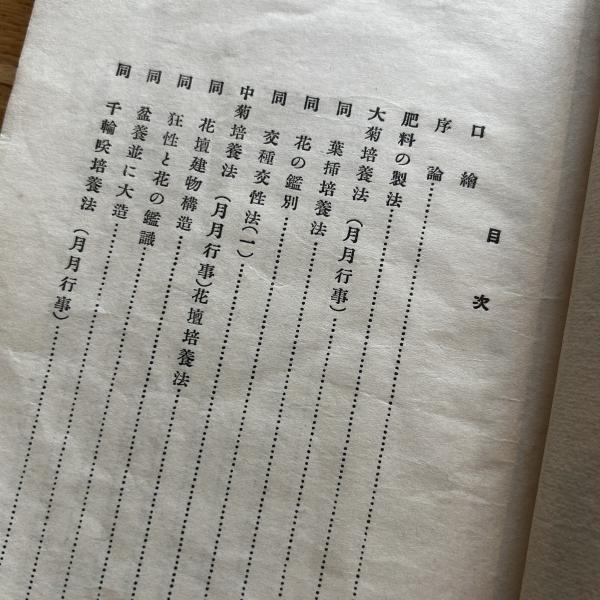 目次
口繪
序論
肥料の製法
大菊培養法（月月行事）
同 葉挿培養法
同 花の鑑別
同 交種交性法（一）
中菊培養法（月月行事）花壇培養法
同 花壇建物構造
同 狂性と花の鑑識
同 盆養並に大造
同 千輪咲培養法（月月行事）